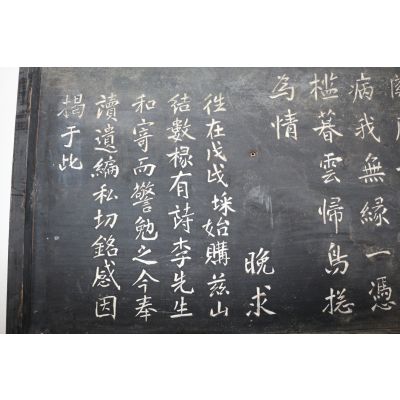 病我無緣一憑
檻暮雲歸鳥摠
為情
晩求
徃在戊戌埰始購玆山
結數椽有詩李先生
和寄而警勉之今奉
讀遺編私切銘感因
揭于此